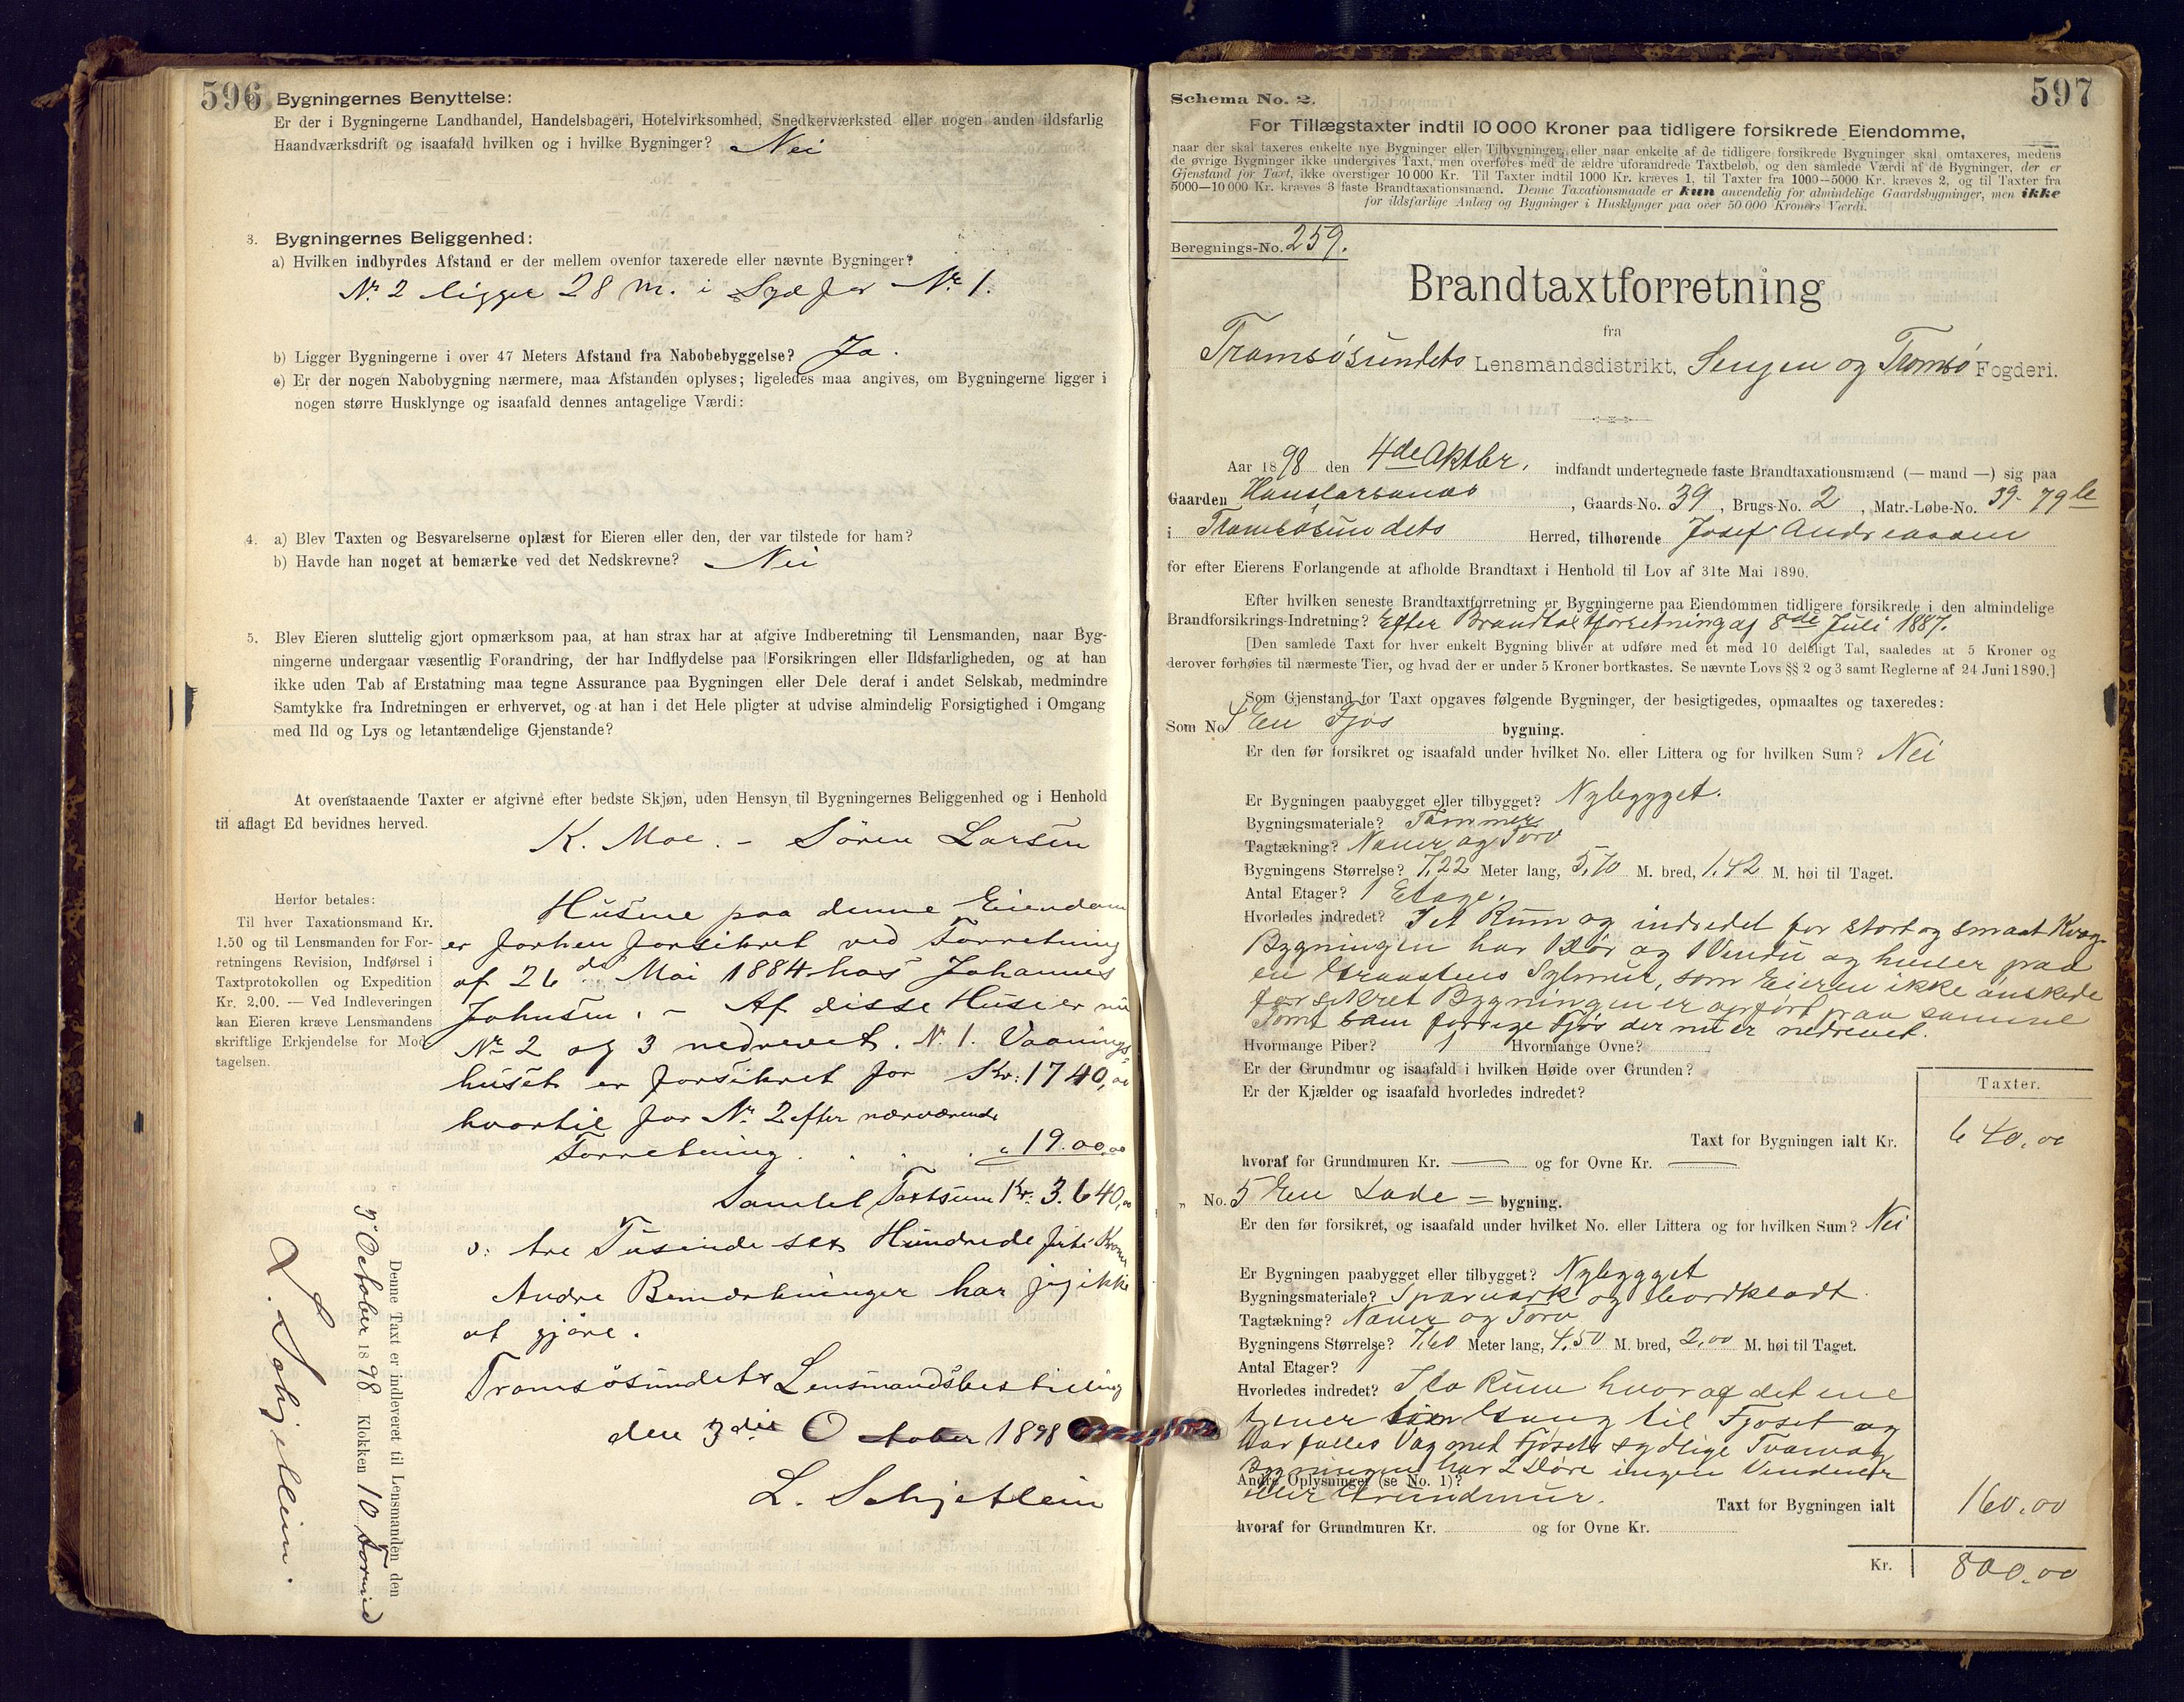 596
Bygningernes Benyttelse:
Er der i Bygningerne Landhandel, Handelsbageri, Hotelvirksomhed, Snedkerværksted eller nogen anden ildsfarlig
Haandværksdrift og isaafald hvilken og i hvilke Bygninger? Nei
3. Bygningernes Beliggenhed:
a) Hvilken indbyrdes Afstand er der mellem ovenfor taxerede eller nævnte Bygninger?
No. 2 ligger 28 m. i Syd for No. 1.
b) Ligger Bygningerne i over 47 Meters Afstand fra Nabobebyggelse? Ja.
c) Er der nogen Nabobygning nærmere, maa Afstanden oplyses; ligeledes maa angives, om Bygningerne ligger i
nogen større Husklynge og isaafald dennes antagelige Værdi:
4. a) Blev Taxten og Besvarelserne oplæst for Eieren eller den, der var tilstede for ham?
b) Havde han noget at bemærke ved det Nedskrevne? Nei
5. Blev Eieren sluttelig gjort opmærksom paa, at han strax har at afgive Indberetning til Lensmanden, naar Byg-
ningerne undergaar væsentlig Forandring, der har Indflydelse paa Forsikringen eller Ildsfarligheden, og at han
ikke uden Tab af Erstatning maa tegne Assurance paa Bygningen eller Dele deraf i andet Selskab, medmindre
Samtykke fra Indretningen er erhvervet, og at han i det Hele pligter at udvise almindelig Forsigtighed i Omgang
med Ild og Lys og letantændelige Gjenstande?
At ovenstaaende Taxter er afgivne efter bedste Skjøn, uden Hensyn til Bygningernes Beliggenhed og i Henhold
til aflagt Ed bevidnes herved.
K. Moe. - Sören Larsen
Herfor betales:
Til hver Taxationsmand Kr.
1.50 og til Lensmanden for For-
retningens Revision, Indførsel i
Taxtprotokollen og Expedition
Kr. 2.00. — Ved Indleveringen
kan Eieren kræve Lensmandens
skriftlige Erkjendelse for Mod-
tagelsen.
Husene paa denne Eiendom
er forhen forsikret ved Forretning
af 26de Mai 1884 hos Johannes
Johnsen. - Af disse Huse er nu
No. 2 og 3 nedrevet. No. 1. Vaanings-
huset er forsikret for Kr: 1740,00
hvortil for No. 2 efter nærværende
Forretning . . . " 19.00,00
Samlet Taxtsum Kr. 3.640,00
o: tre Tusinde sex Hundrede firti Kroner
Andre Bemærkninger har jeg ikke
at gjøre.
Tromsösundets Lensmandsbestilling
den 3die October 1898
L. Schjetlein
Denne Taxt er indleveret til Lensmanden den
3 October 1898 Klokken 10 Formid
L. Schjetlein.
597
Schema No. 2.
For Tillægstaxter indtil 10 000 Kroner paa tidligere forsikrede Eiendomme,
naar der skal taxeres enkelte nye Bygninger eller Tilbygninger, eller naar enkelte af de tidligere forsikrede Bygninger skal omtaxeres, medens
de øvrige Bygninger ikke undergives Taxt, men overføres med de ældre uforandrede Taxtbeløb, og den samlede Værdi af de Bygninger, der er
Gjenstand for Taxt, ikke overstiger 10 000 Kr. Til Taxter indtil 1000 Kr. kræves 1, til Taxter fra 1000—5000 Kr. kræves 2, og til Taxter fra
5000—10 000 Kr. kræves 3 faste Brandtaxationsmænd. Denne Taxationsmaade er kun anvendelig for almindelige Gaardsbygninger, men ikke
for ildsfarlige Anlæg og Bygninger i Husklynger paa over 50 000 Kroners Værdi.
Beregnings-No. 259.
Brandtaxtforretning
fra
Tromsösundets Lensmandsdistrikt, Senjen og Tromsö Fogderi.
Aar 1898 den 4de Oktbr. indfandt undertegnede faste Brandtaxationsmænd (— mand —) sig paa
Gaarden Hanslarsanæs, Gaards-No. 39, Brugs-No. 2, Matr.-Løbe-No. 39-79 b
i Tromsösundets Herred, tilhørende Josef Andreassen
for efter Eierens Forlangende at afholde Brandtaxt i Henhold til Lov af 31te Mai 1890.
Efter hvilken seneste Brandtaxtforretning er Bygningerne paa Eiendommen tidligere forsikrede i den almindelige
Brandforsikrings-Indretning? Efter Brandtaxtforretning af 8de Juli 1887.
[Den samlede Taxt for hver enkelt Bygning bliver at udføre med et med 10 deleligt Tal, saaledes at 5 Kroner og
derover forhøies til nærmeste Tier, og hvad der er under 5 Kroner bortkastes. Se nævnte Lovs §§ 2 og 3 samt Reglerne af 24 Juni 1890.]
Som Gjenstand for Taxt opgaves følgende Bygninger, der besigtigedes, opmaaltes og taxeredes:
Som No. En Fjøs bygning.
Er den før forsikret og isaafald under hvilket No. eller Littera og for hvilken Sum? Nei
Er Bygningen paabygget eller tilbygget? Nybygget.
Bygningsmateriale? Tømmer
Tagtækning? Næver og Torv
Bygningens Størrelse? 7,22 Meter lang, 5,70 M. bred, 1,42 M. høi til Taget.
Antal Etager? 1 Etage.
Hvorledes indredet? I et Rum og indredet for stort og smaat Kvæg
Bygningen har 1 Dör og 1 Vindu og hviler paa
en Graastens Sylmur, som Eieren ikke önskede
forsikret Bygningen er opfört paa samme
Tomt som forrige Fjös der nu er nedrevet.
Hvormange Piber? Hvormange Ovne?
Er der Grundmur og isaafald i hvilken Høide over Grunden?
Er der Kjælder og isaafald hvorledes indredet?
Taxter.
Taxt for Bygningen ialt Kr. 640,00
hvoraf for Grundmuren Kr. — og for Ovne Kr. —
" No. 5 En Lade = bygning.
Er den før forsikret, og isaafald under hvilket No. eller Littera og for hvilken Sum? Nei
Er Bygningen paabygget eller tilbygget? Nybygget
Bygningsmateriale? Sparværk og bordklædt.
Tagtækning? Næver og Torv
Bygningens Størrelse? 7,60 Meter lang, 4,50 M. bred, 2,00 M. høi til Taget.
Antal Etager?
Hvorledes indredet? I to Rum hvoraf det ene
tjener som Gang til Fjøset og
har fælles Væg med Fjøsets sydlige Tværvæg
Bygningen har 2 Döre ingen Vinduer
Andre Oplysninger (se No. 1)?
eller Grundmur.
Taxt for Bygningen ialt 160.00
hvoraf for Grundmuren Kr. og for Ovne Kr.
Kr. 800.00